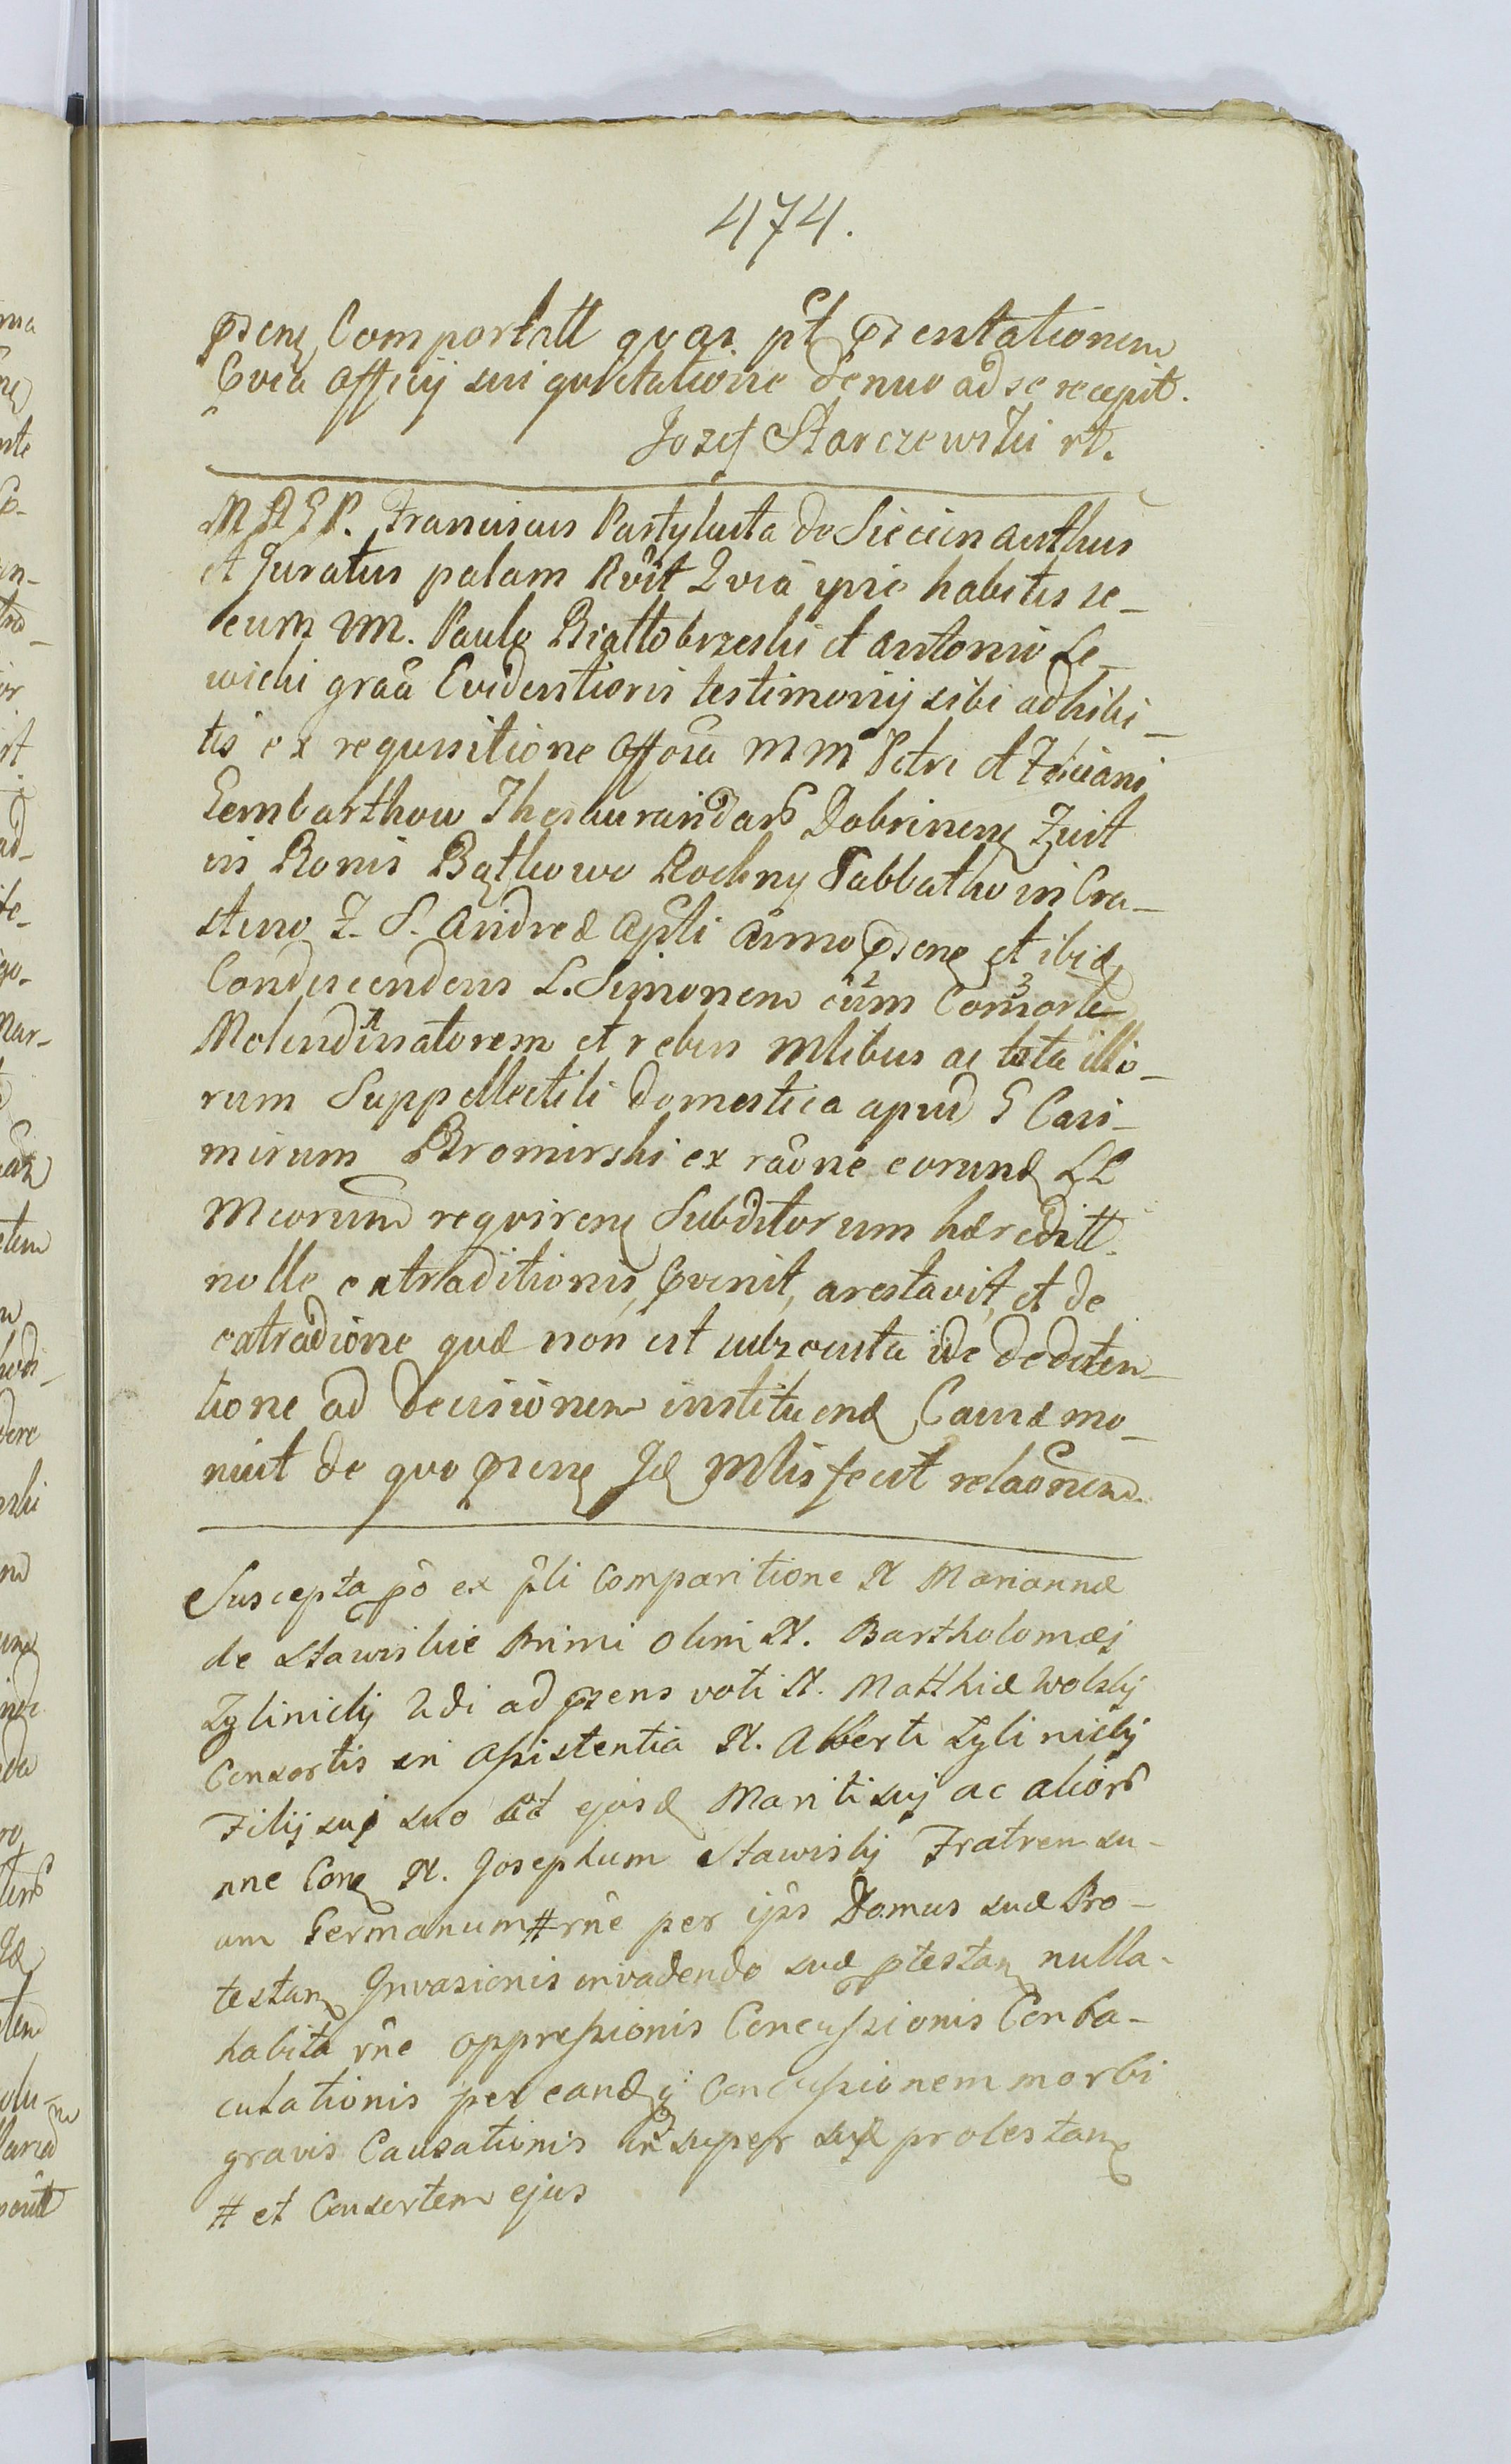 474.
pręsenę Comportatt quas pt pręsentationem
Cvia Officij sui qvietatione denuo ad se recepit.
Jozef Starczewski rt.
M R G P. Franciscus Pastyluita de Siecien authus
et Juratus palam Rvît Qvia ipse habitis se-
cum VM. Paulo Białłobrzeski et Antonio Le-
wicki graâ Evidentioris testimonij sibi adhibi-
tis ex requisitione Offosa MM Petri et Feliciani
Gembarthow Thesaurariidarb Dobrinenę fuit
in Bonis Bątkowo Rockny Sabbatho in Cra-
stino F. S. Andreæ Apłi Anno pręsenę et ibidę
Condescendens L. Simonem cum Consorte
Molendinatorem et rebus Mlibus ac tota illo-
rum Suppellectili domestica apud G Casi-
mirum Bromirski ex raône eorundę LL
Meorum reqvirenę Subditorum hæreditt.
nolle extraditionis, Cvenit, arestavit, et de
extradione quæ non est subsecuta ide de deten-
tione ad decisionem instituendę Causæ mo-
nuit de quo pręsenę Idę Mlis fecit relaônem.
Suscepta pô ex pli Comparitione N Mariannæ
de Stawiskie Primi olim N. Bartholomæi
Zglinickij 2di ad præsens voti N. Matthiæ Wolskij
Consortis in Assistentia N. Alberti Zglinickij
Filij sui suo et ejusdę Mariti suj ac aliorb
nne Conę N. Josephum Stawiskij Fratrem su-
um Germanum # rne per ips Domus suæ Pro-
testanę Invasionis invadendo suæ ptestanę nulla-
habita rne oppressionis Concussionis Conba-
culationis per eandę Concussionem morbi
gravis Causationis insuper suæ protestanę
# et Consortem ejus